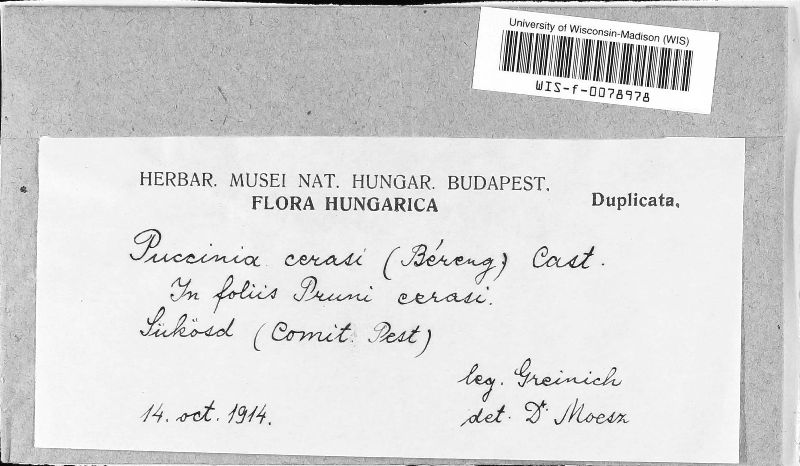 University of Wisconsin-Madison (WIS)
WIS-f-0078978
HERBAR. MUSEI NAT. HUNGAR. BUDAPEST.
FLORA HUNGARICA
Duplicata.
Puccinia cerasi (Béreng) Cast.
In foliis Pruni cerasi.
Sükösd (Comit. Pest)
leg. Greinich
14. oct. 1914.
det. Dr. Moesz